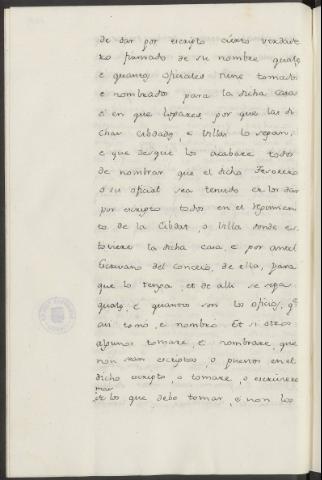 de dar por escripto cierto verdade
ro firmado de su nombre quales
e quantos oficiales tiene tomados
e nombrados para la dicha casa
e en que lugares, por que las di
chas Cibdades, e villas lo sepan:
e que desque los acabare todos
de nombrar que el dicho Tesorero
o su oficial sea tenudo de los dar
por escripto todos en el regimien
to de la Cibdat, o villa donde es
toviere la dicha casa, e por antel
Escrivano del concejo de ella, para
que lo tenga, et de alli se sepa
quales, e quantos son los oficios, qe
asi tomó, e nombró. Et si otros
algunos tomare, e nombrare, que
non sean escriptos, o puestos en el
dicho escripto, o tomare, o escriviere
mas
de los que debe tomar, e non los